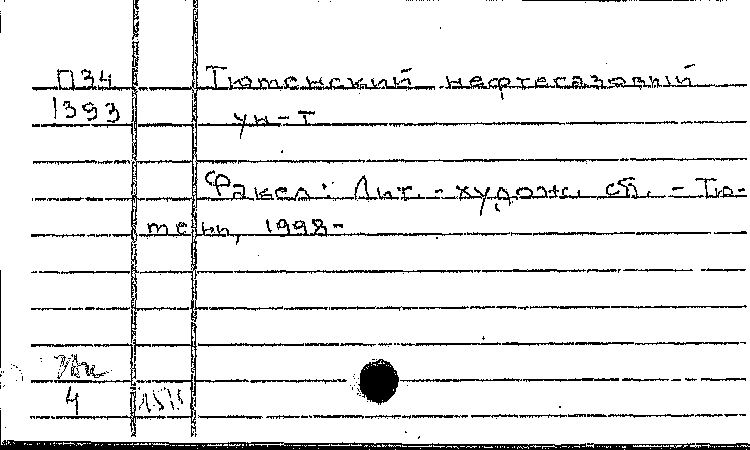 П34 Тюменский нефтегазовый
1393 ун-т
Факел: Лит.-худож. сб. - Тю-
мень, 1998-
4